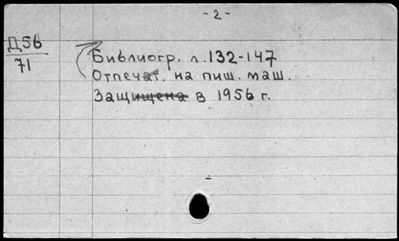 - 2 -
Д56
71
Библиогр. л. 132-147
Отпечат. на пиш. маш.
Защищена в 1956 г.